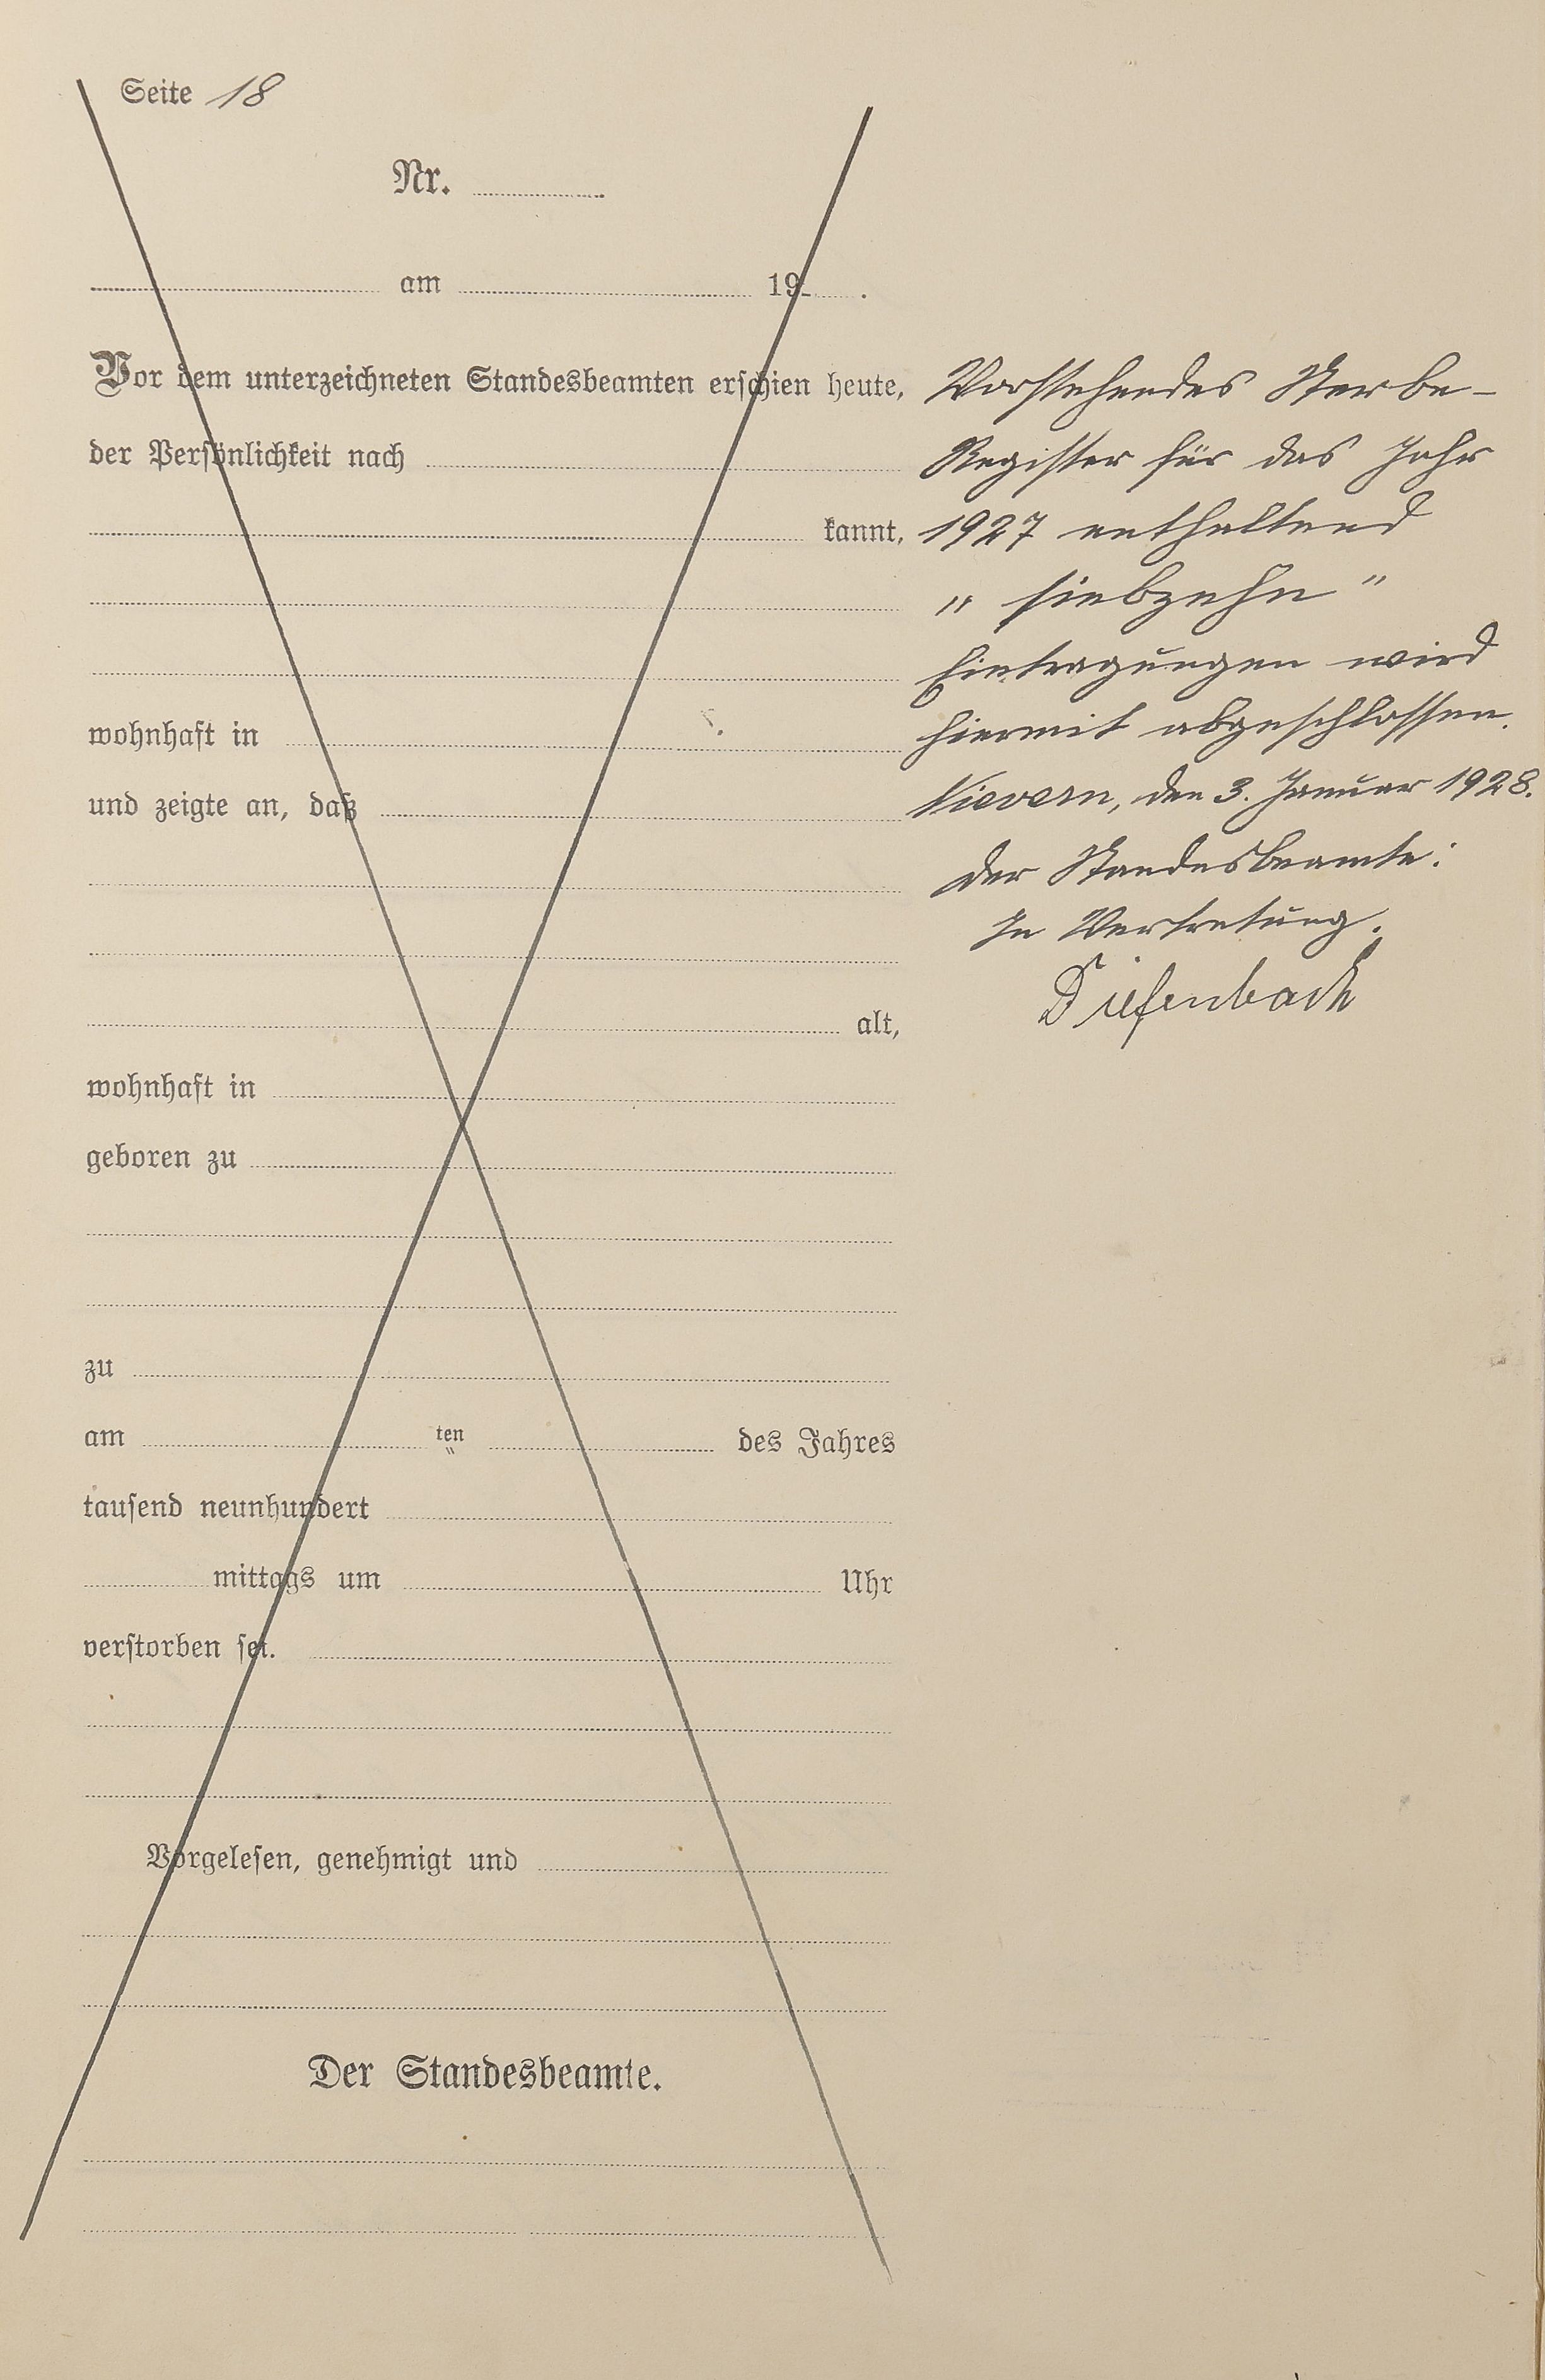 Seite 18
Nr.
am 19 .
Vor dem unterzeichneten Standesbeamten erschien heute,
der Persönlichkeit nach
kannt,
wohnhaft in
und zeigte an, daß
alt,
wohnhaft in
geboren zu
zu
am ten des Jahres
tausend neunhundert
mittags um Uhr
verstorben sei.
Vorgelesen, genehmigt und
Der Standesbeamte.
Vorstehendes Sterbe-
Register für das Jahr
1927 enthaltend
„ siebzehn "
Eintragungen wird
hiermit abgeschlossen.
Nievern, den 3. Januar 1928.
Der Standesbeamte:
In Vertretung.
Diefenbach